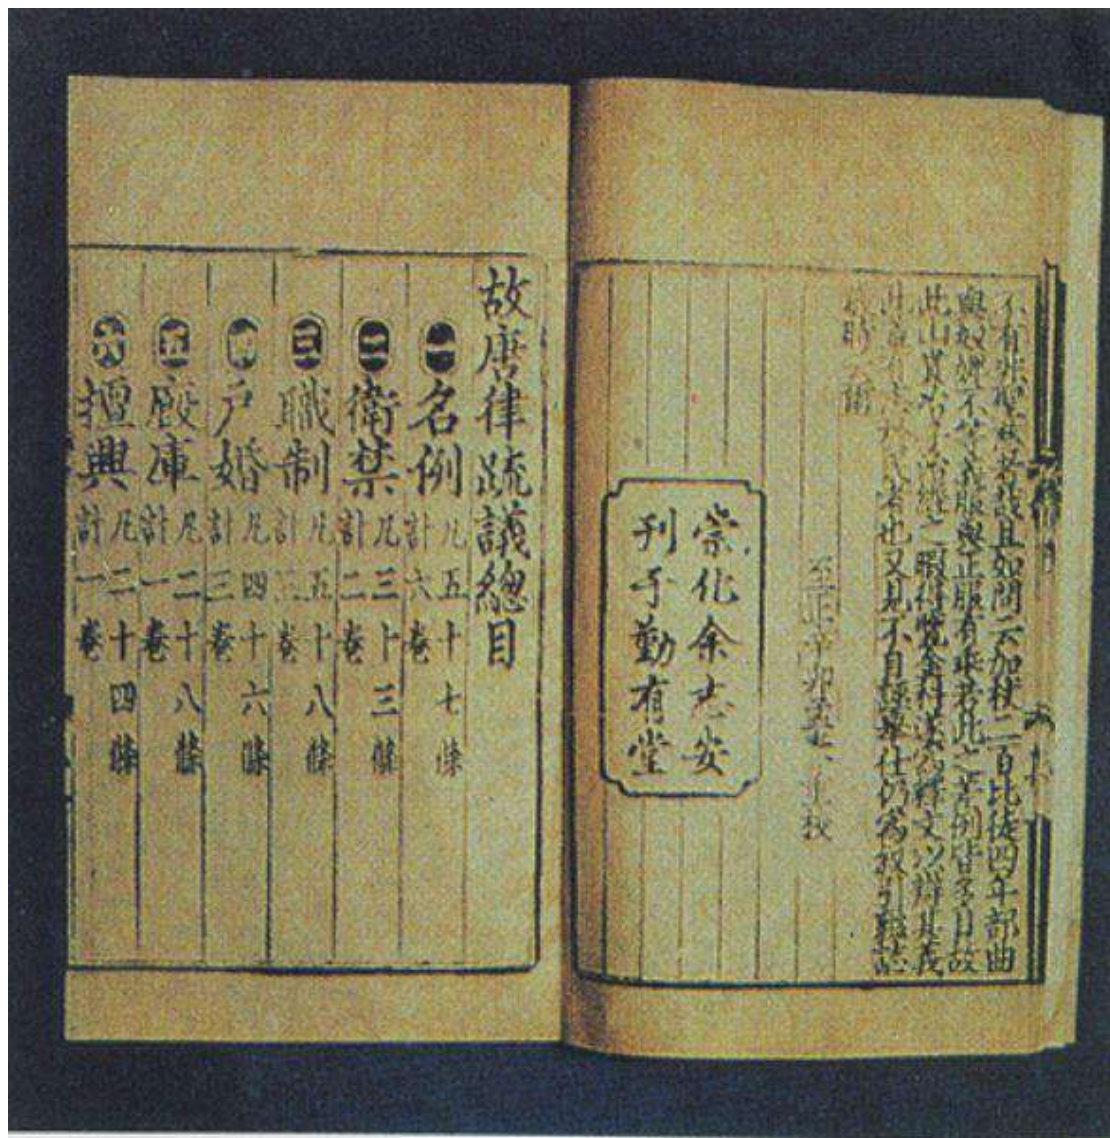 不有且如問加杖二百比徒四年部曲
與奴婢不等義服與正服有乖若此之差例皆多目故
此山貰冶子治經之暇得覽金科遂為釋文以辯其義
者也又見不自仕仍為敘引
至正辛卯五重校
崇化余志安
刋于勤有堂
故唐律疏議總目
一 名例 凡五十七條 計六卷
二 衛禁 凡三十三條 計二卷
三 職制 凡五十八條 計三卷
四 戶婚 凡四十六條 計三卷
五 廏庫 凡二十八條 計一卷
六 擅興 凡二十四條 計一卷